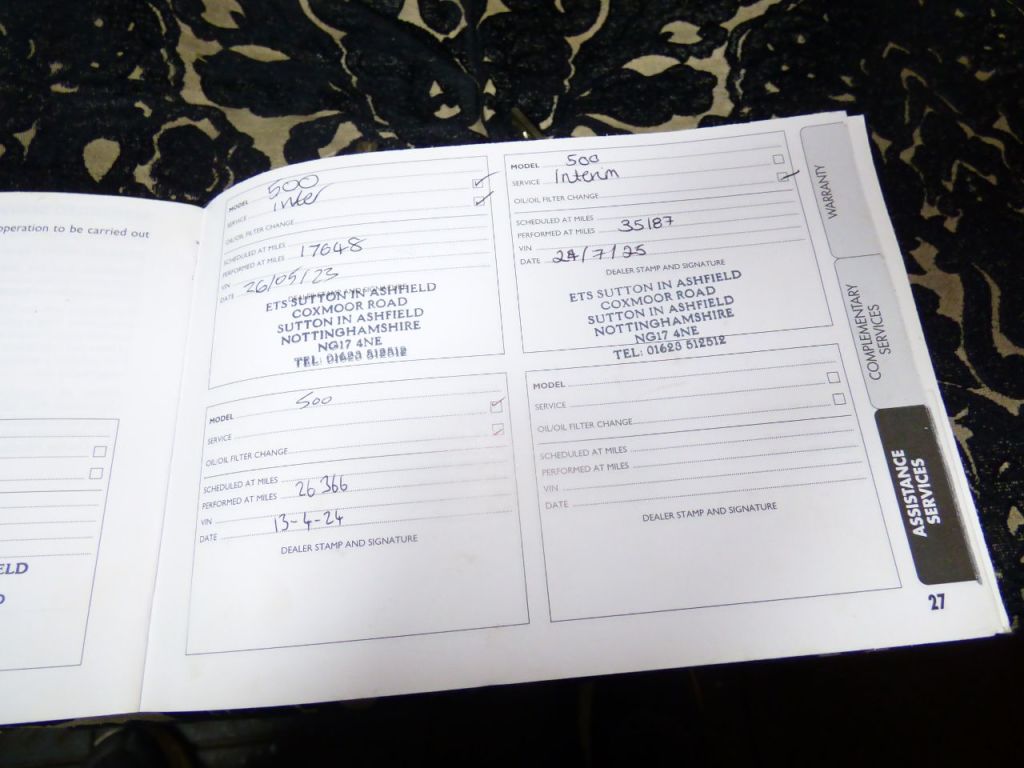 operation to be carried out
ELD
MODEL 500
SERVICE inter
OIL/OIL FILTER CHANGE
SCHEDULED AT MILES
PERFORMED AT MILES 17648
VIN
DATE 26/05/23
DEALER STAMP AND SIGNATURE
ETS SUTTON IN ASHFIELD
COXMOOR ROAD
SUTTON IN ASHFIELD
NOTTINGHAMSHIRE
NG17 4NE
TEL: 01623 512512
MODEL 500
SERVICE Interim
OIL/OIL FILTER CHANGE
SCHEDULED AT MILES
PERFORMED AT MILES 35187
VIN
DATE 24/7/25
DEALER STAMP AND SIGNATURE
ETS SUTTON IN ASHFIELD
COXMOOR ROAD
SUTTON IN ASHFIELD
NOTTINGHAMSHIRE
NG17 4NE
TEL: 01623 512512
MODEL 500
SERVICE
OIL/OIL FILTER CHANGE
SCHEDULED AT MILES
PERFORMED AT MILES 26366
VIN
DATE 13-4-24
DEALER STAMP AND SIGNATURE
MODEL
SERVICE
OIL/OIL FILTER CHANGE
SCHEDULED AT MILES
PERFORMED AT MILES
VIN
DATE
DEALER STAMP AND SIGNATURE
WARRANTY
COMPLEMENTARY
SERVICES
ASSISTANCE
SERVICES
27